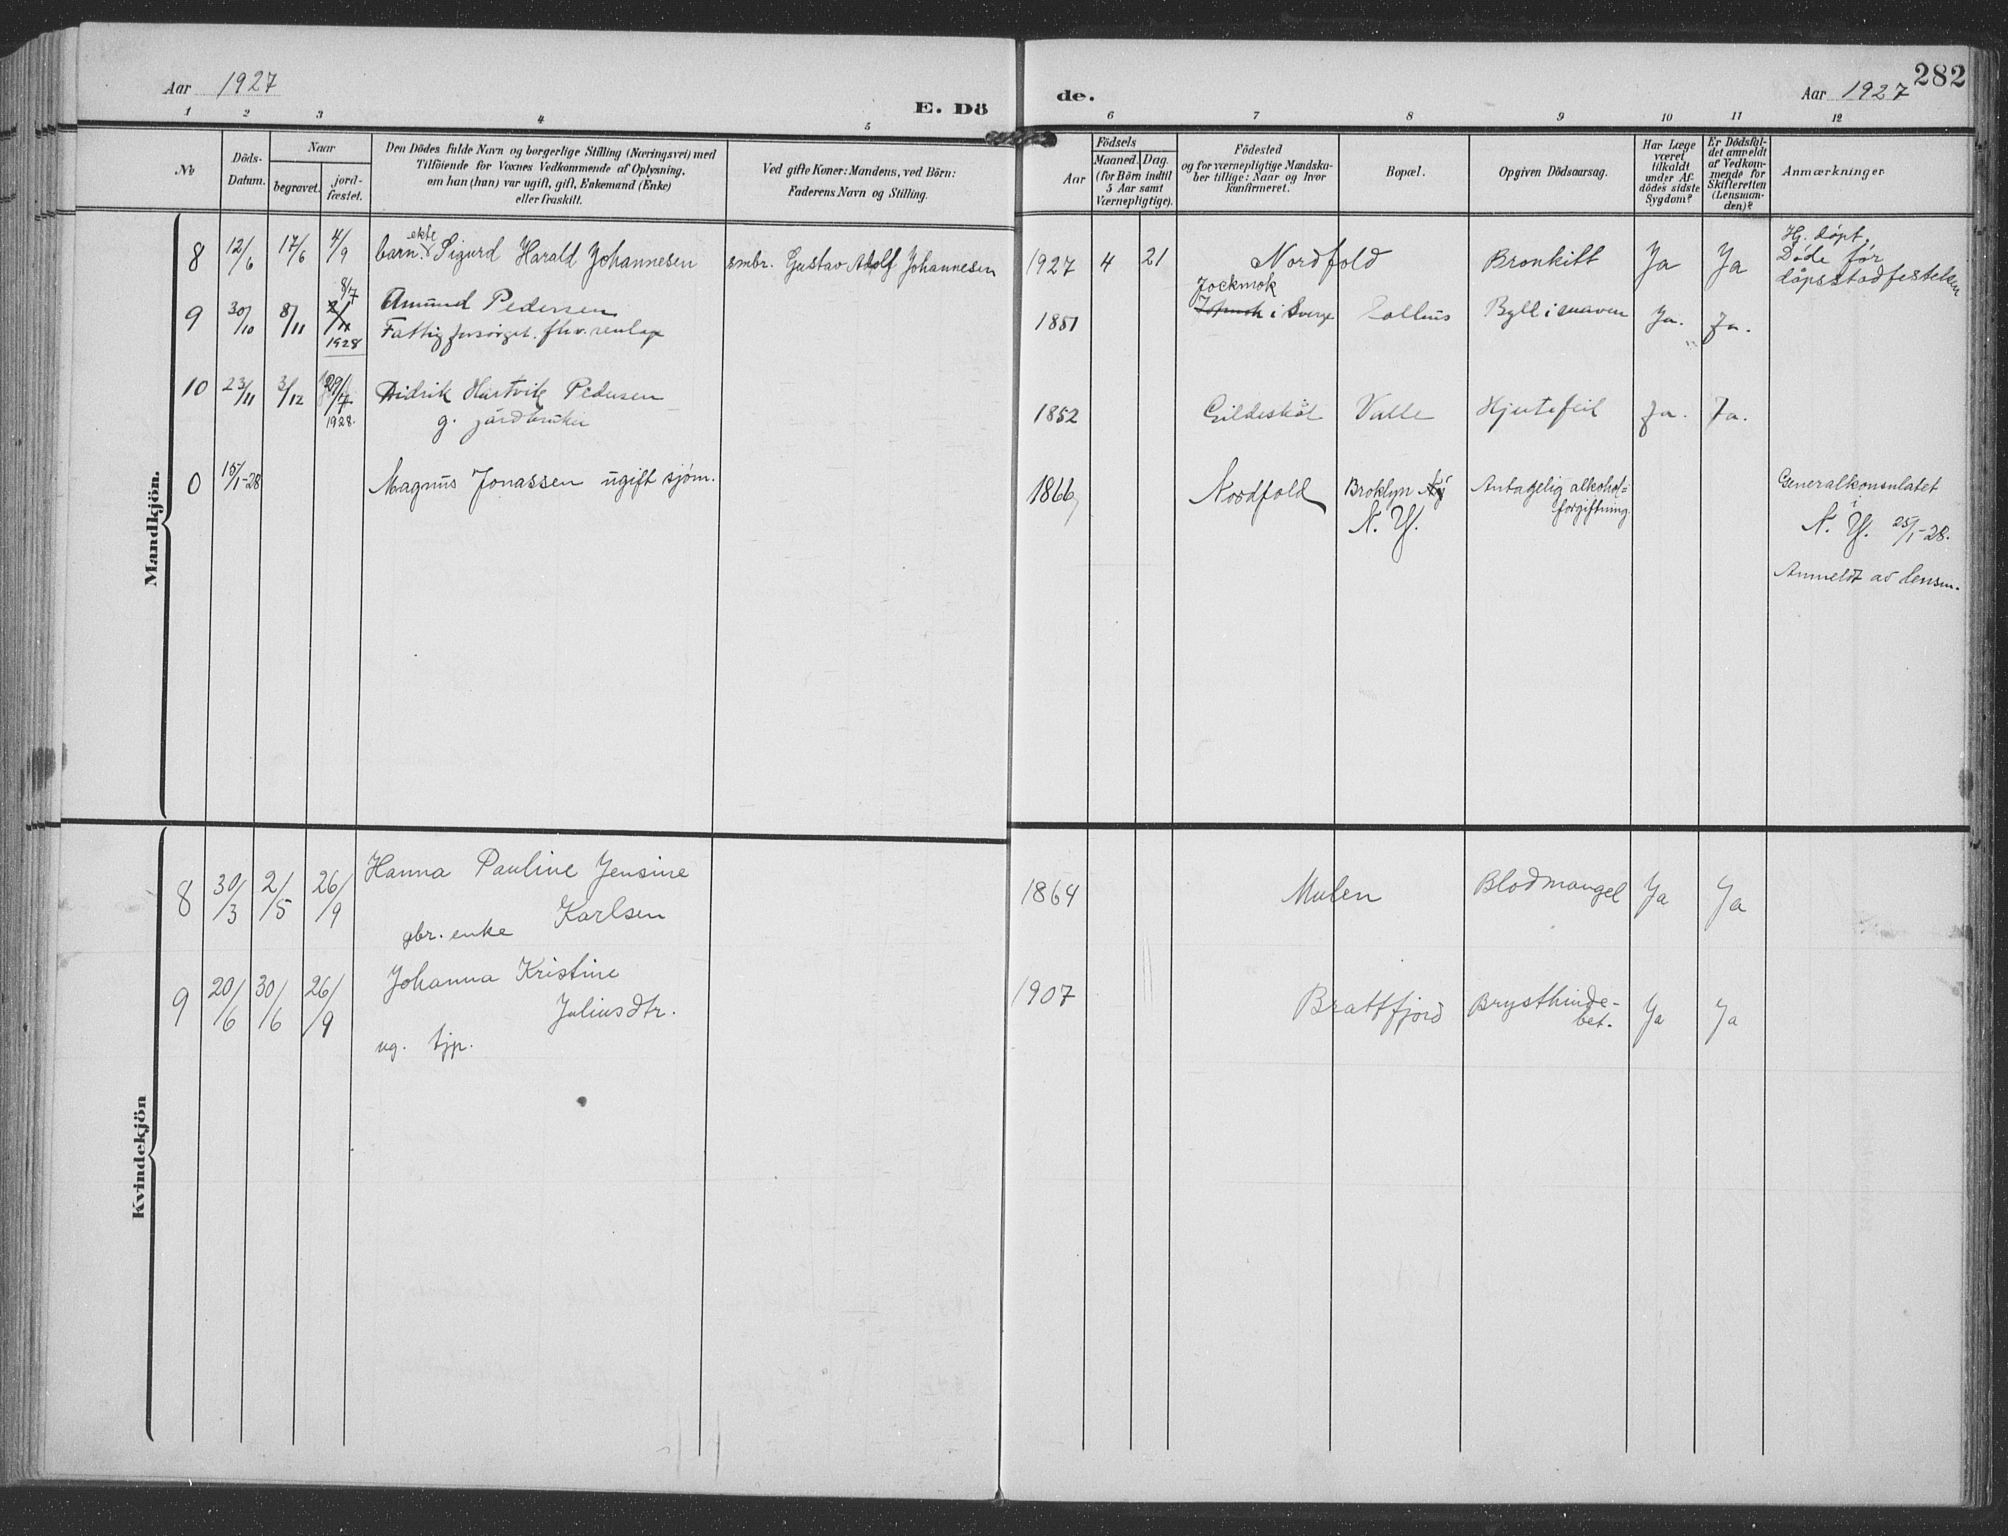 Aar 1927
E. Dö
de.
Aar 1927
282
1 2 3 4 5 6 7 8 9 10 11 12
No
Döds-
Datum.
Naar
begravet.
jord-
fæstet.
Den Dödes fulde Navn og borgerlige Stilling (Næringsvei) med
Tilföiende for Voxnes Vedkommende af Oplysning,
om han (hun) var ugift, gift, Enkemand (Enke)
eller fraskilt.
Ved gifte Koner: Mandens, ved Börn:
Faderens Navn og Stilling.
Födsels
Aar
Maaned. Dag.
(for Börn indtil
5 Aar samt
Værnepligtige).
Födested
og for værnepligtige Mandska-
ber tillige: Naar og hvor
konfirmeret.
Bopæl.
Opgiven Dödsaarsag.
Har Læge
været
tilkaldt
under Af-
dödes sidste
Sygdom?
Er Dödsfal-
det anmeldt
af Vedkom-
mende for
Skifteretten
(Lensman-
den)?
Anmærkninger
Mandkjön.
8 12/6 17/6 4/9 barn. ekte Sigurd Harald Johannesen smbr. Gustav Adolf Johannesen 1927 4 21 Nordfold Bronkitt Ja Ja
Hj. döpt,
Döde før
dåpsstadfestelsen
9 30/10 8/11 8/7 1928
Amund Pedersen
Fattigforsörget. fhv. renlap
1851
Jockmok
i Sverge
Byll i maven Ja. Ja.
10 23/11 3/12 29/7 1928.
Didrik Hartvik Pedersen
g. jordbruker
1852 Gildeskål Valle Hjertefeil Ja. Ja.
0 15/1-28 Magnus Jonassen ugift sjøm. 1866 Nordfold
Broklyn
N. Y.
Antagelig alkohol=
forgiftning
Generalkonsulatet
i
N. Y. 25/1-28.
Anmeldt av lensm.
Kvindekjön
8 30/3 2/5 26/9
Hanna Pauline Jensine
Karlsen
gbr. enke
1864 Mulen Blodmangel Ja Ja
9 20/6 30/6 26/9
Johanna Kristine
Juliusdtr.
ug. tjp.
1907 Brattfjord
Brysthinde-
bet.
Ja Ja